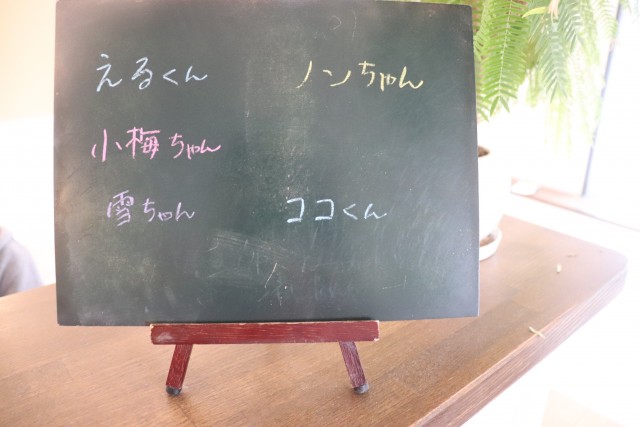 えるくん
ノンちゃん
小梅ちゃん
雪ちゃん
ココくん